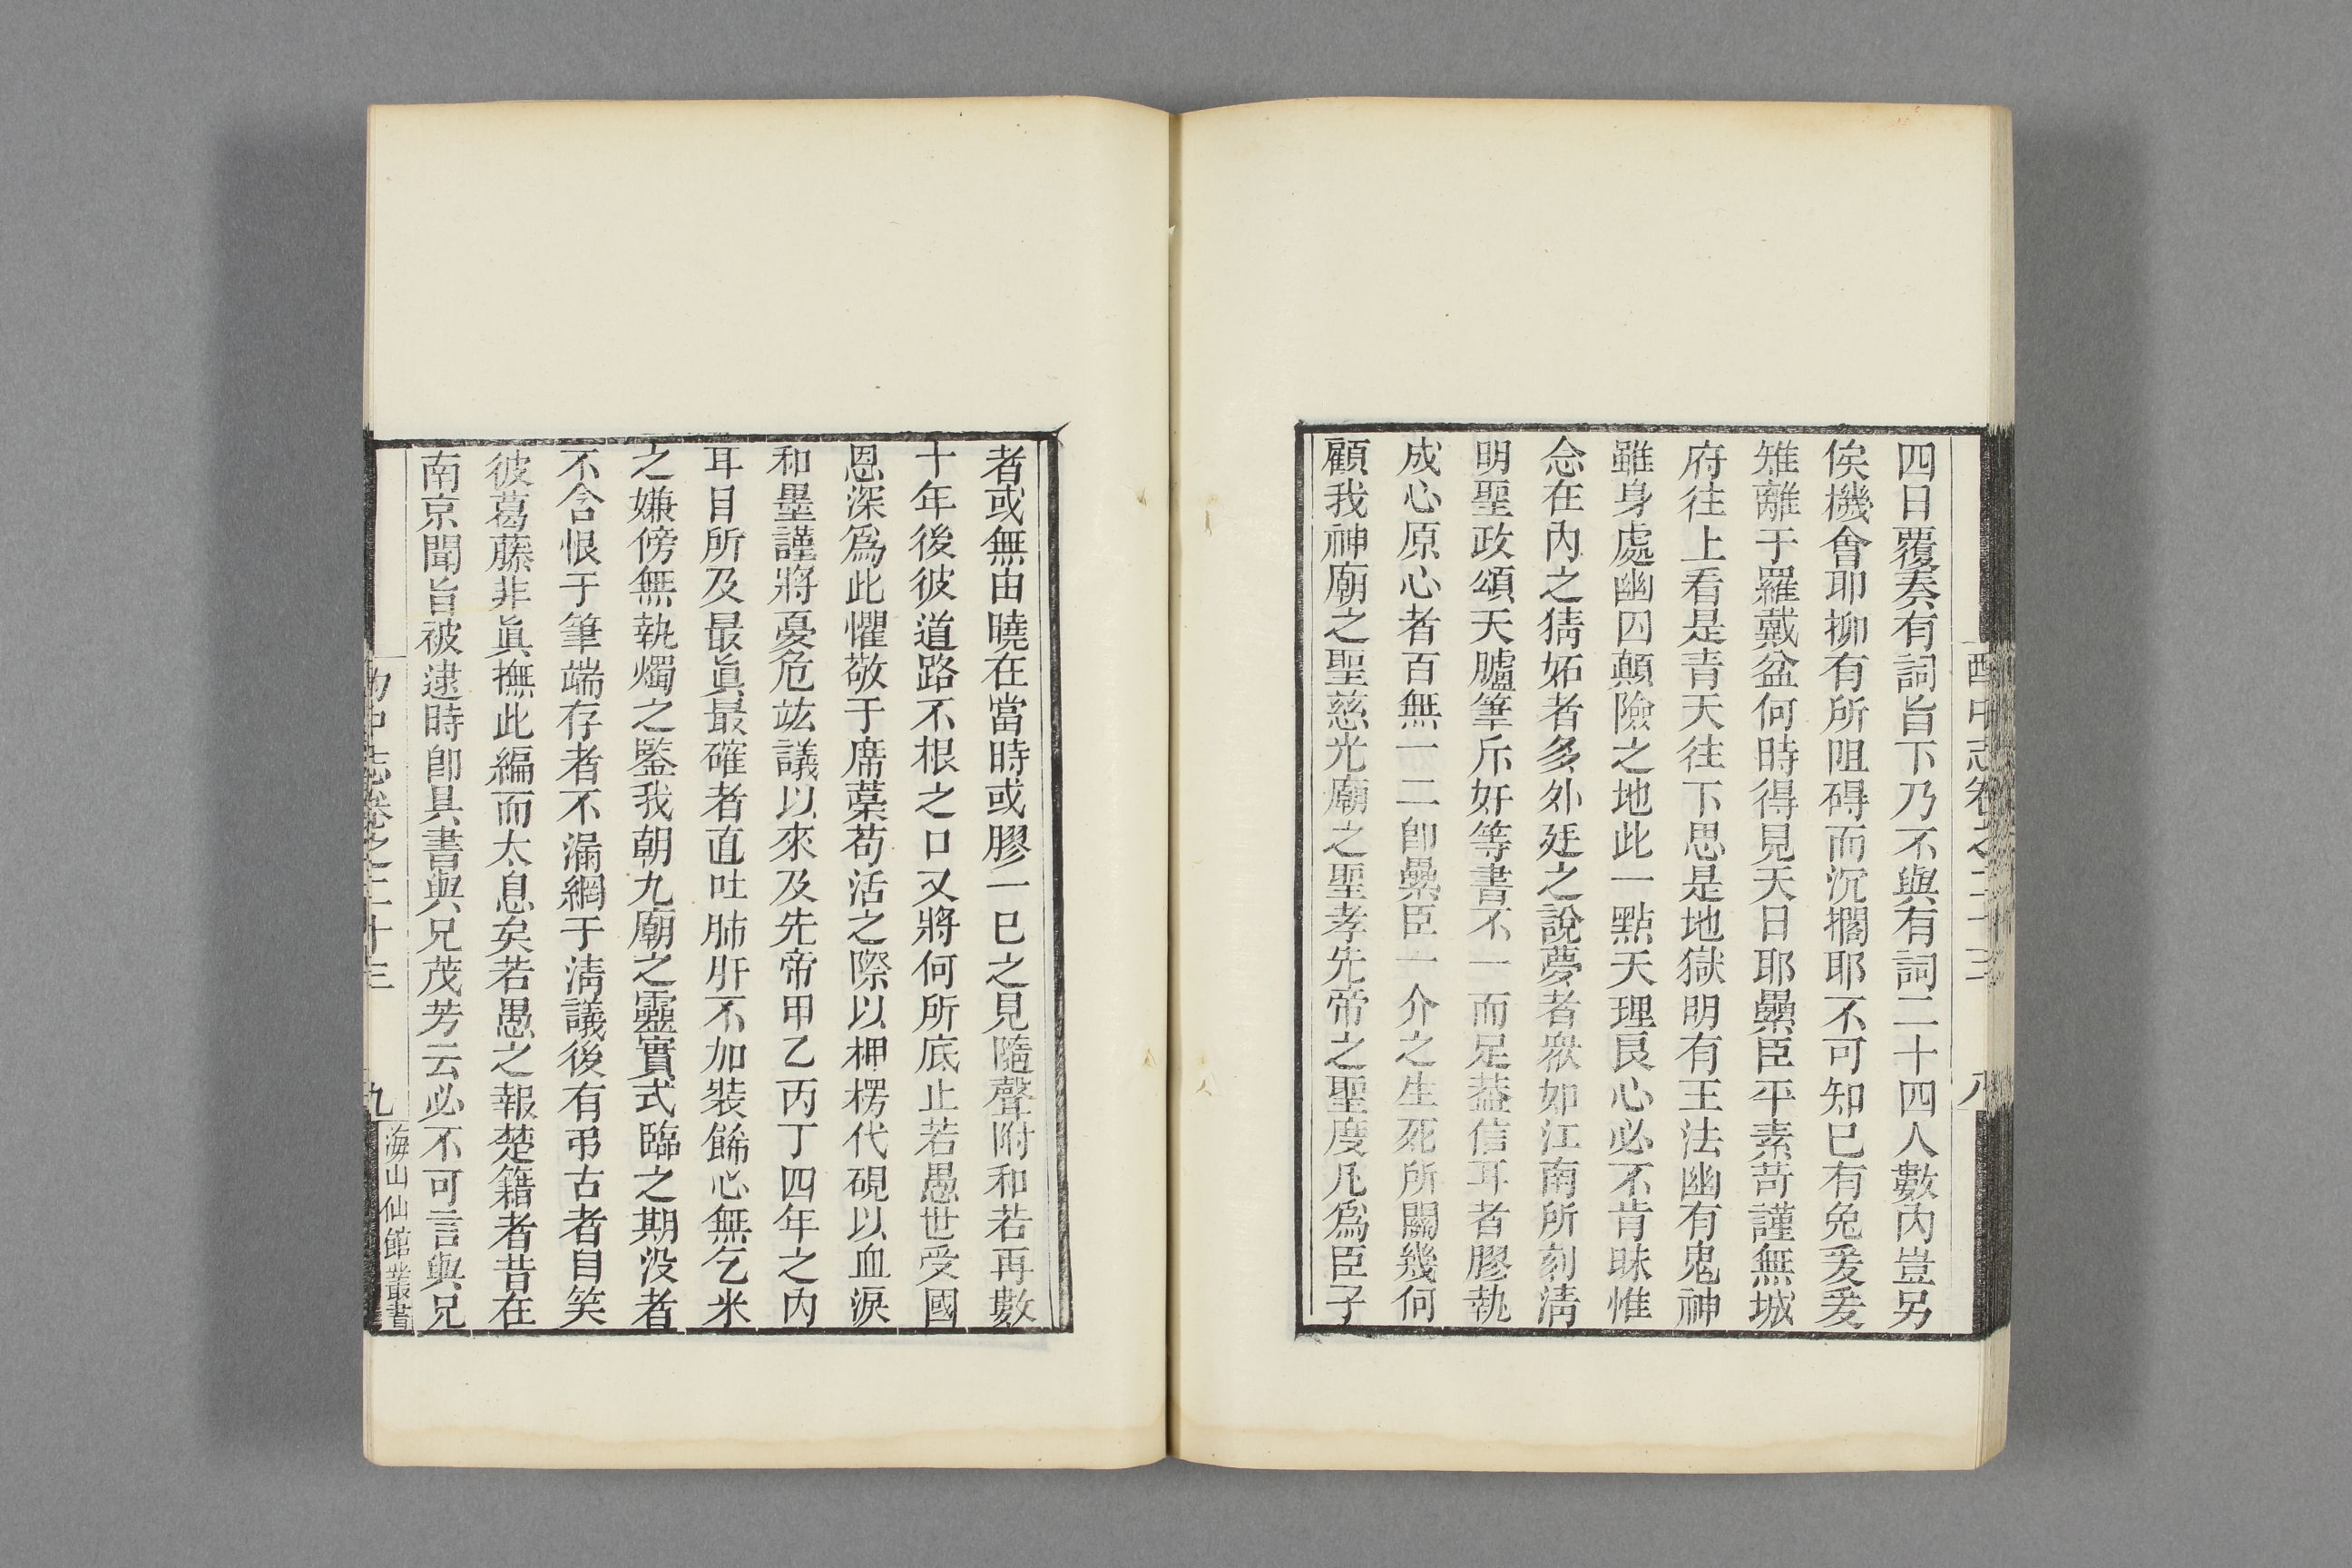 四日覆奏有詞旨下乃不與有詞二十四人數內豈另
俟機會耶抑有所阻碍而沉擱耶不可知巳有兔爰爰
雉離于羅戴盆何時得見天日耶纍臣平素苛謹無城
府往上看是青天往下思是地獄明有王法幽有鬼神
雖身處幽囚顛險之地此一點天理艮心必不肯昧惟
念在內之猜妬者多外廷之說夢者衆如江南所刻淸
明聖政頌天臚筆斥奸等書不一而足葢信耳者膠執
成心原心者百無一二卽纍臣一介之生死所關幾何
顧我神廟之聖慈光廟之聖孝先帝之聖度凡爲臣子
酌中志卷之二十三
八
者或無由曉在當時或膠一巳之見隨聲附和若再數
十年後彼道路不根之口又將何所底止若愚世受國
恩深爲此懼敬于席藁苟活之際以柙楞代硯以血淚
和墨謹將憂危竑議以來及先帝甲乙丙丁四年之內
耳目所及最眞最確者直吐肺肝不加裝餙心無乞米
之嫌傍無執燭之監我朝九廟之靈實式臨之期没者
不含恨于筆端存者不漏網于淸議後有弔古者自笑
彼葛藤非眞撫此編而太息矣若愚之報楚籍者昔在
南京聞旨被逮時卽具書與兄茂芳云必不可言與兄
酌中志卷之二十三
九
海山仙館叢書